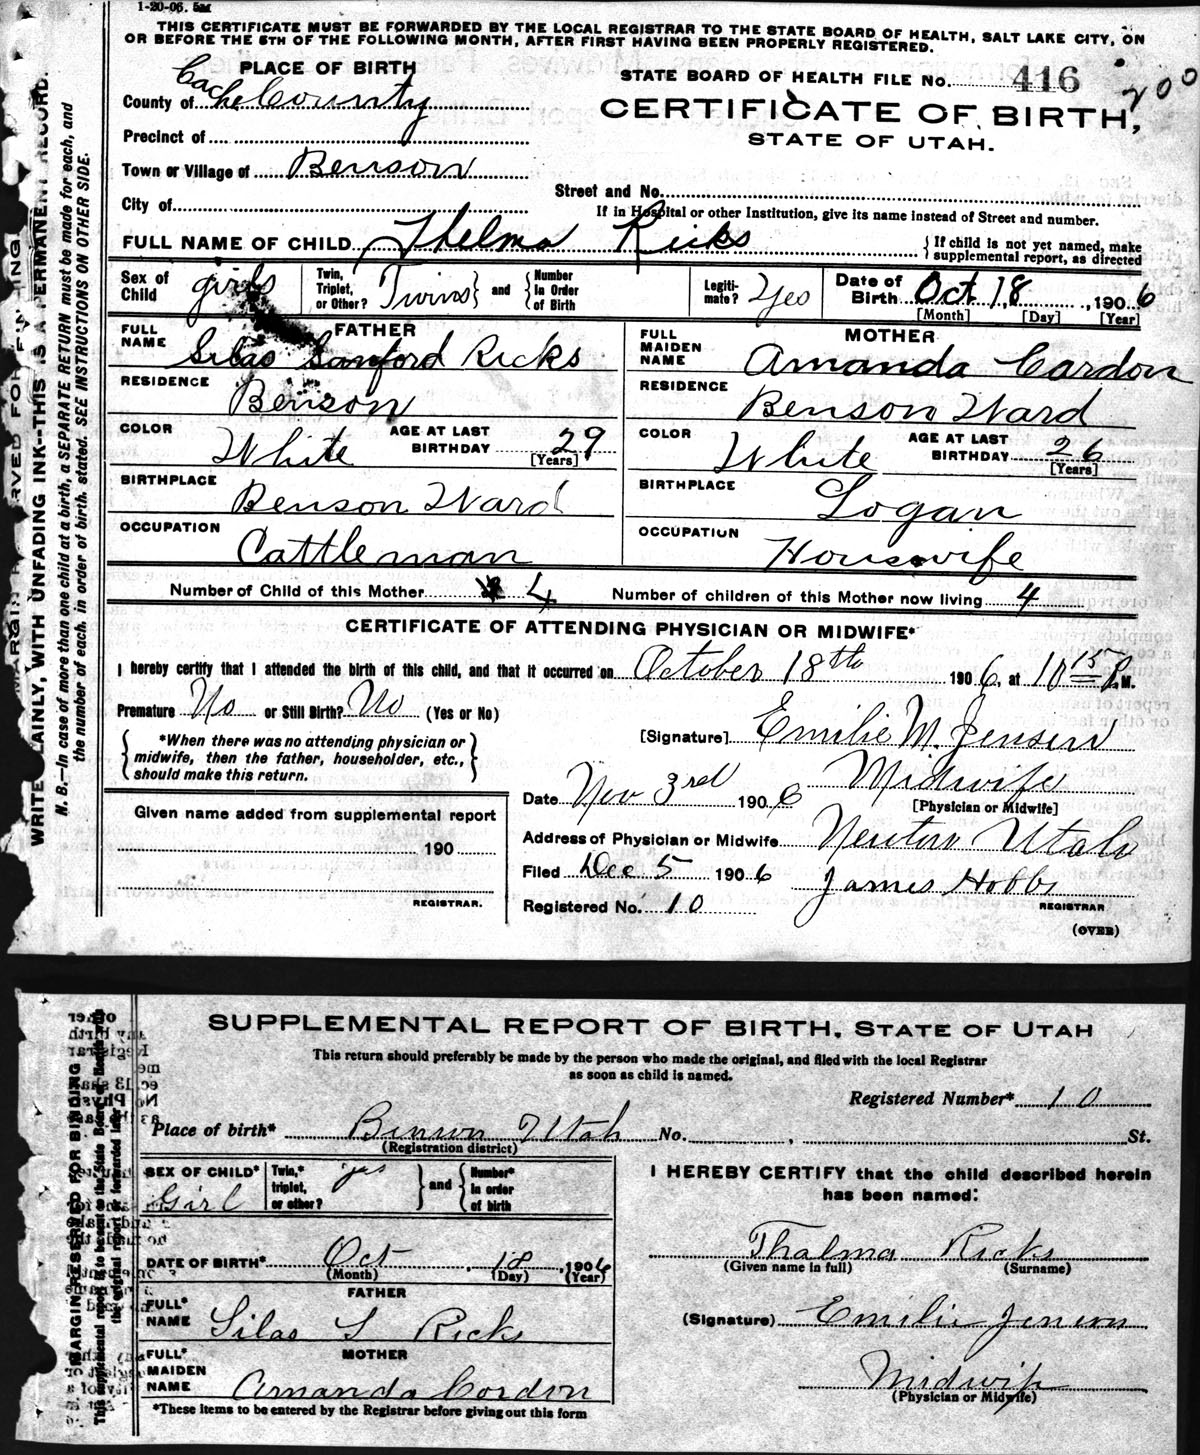 1-20-06. 5M
THIS CERTIFICATE MUST BE FORWARDED BY THE LOCAL REGISTRAR TO THE STATE BOARD OF HEALTH, SALT LAKE CITY, ON
OR BEFORE THE 5TH OF THE FOLLOWING MONTH, AFTER FIRST HAVING BEEN PROPERLY REGISTERED.
PLACE OF BIRTH
STATE BOARD OF HEALTH FILE No. 416
200
County of Cache County
CERTIFICATE OF BIRTH,
STATE OF UTAH.
Precinct of
Town or Village of Benson
Street and No.
City of
If in Hospital or other Institution, give its name instead of Street and number.
FULL NAME OF CHILD Thelma Ricks
{ If child is not yet named, make
supplemental report, as directed
Sex of Child girls
Twin, Triplet, or Other? Twins } and { Number In Order of Birth
Legitimate? Yes
Date of Birth Oct 18, 1906
[Month] [Day] [Year]
FATHER
FULL NAME Silas Sanford Ricks
RESIDENCE Benson
COLOR White AGE AT LAST BIRTHDAY 29
[Years]
BIRTHPLACE Benson Ward
OCCUPATION Cattleman
MOTHER
FULL MAIDEN NAME Amanda Cardon
RESIDENCE Benson Ward
COLOR White AGE AT LAST BIRTHDAY 26
[Years]
BIRTHPLACE Logan
OCCUPATION Housewife
Number of Child of this Mother 4 Number of children of this Mother now living 4
CERTIFICATE OF ATTENDING PHYSICIAN OR MIDWIFE*
I hereby certify that I attended the birth of this child, and that it occurred on October 18th 1906, at 10 15 P.M.
Premature No or Still Birth? No (Yes or No)
*When there was no attending physician or
midwife, then the father, householder, etc.,
should make this return.
[Signature] Emilie M. Jensen
Midwife
Date Nov 3rd 1906 [Physician or Midwife]
Given name added from supplemental report
190
REGISTRAR.
Address of Physician or Midwife Newton Utah
Filed Dec 5 1906 James Hobbs
Registered No. 10 REGISTRAR
(OVER)
MARGIN RESERVED FOR BINDING
WRITE PLAINLY, WITH UNFADING INK--THIS IS A PERMANENT RECORD.
N. B.—In case of more than one child at a birth, a SEPARATE RETURN must be made for each, and
the number of each, in order of birth, stated. SEE INSTRUCTIONS ON OTHER SIDE.
SUPPLEMENTAL REPORT OF BIRTH, STATE OF UTAH
This return should preferably be made by the person who made the original, and filed with the local Registrar
as soon as child is named.
Registered Number* 10
Place of birth* Benson Utah No. , St.
(Registration district)
SEX OF CHILD* Girl
Twin,* triplet, or other? yes } and { Number* in order of birth
DATE OF BIRTH* Oct 18, 1906
(Month) (Day) (Year)
FATHER
FULL* NAME Silas S Ricks
MOTHER
FULL* MAIDEN NAME Amanda Cordon
*These items to be entered by the Registrar before giving out this form
I HEREBY CERTIFY that the child described herein
has been named:
Thalma Ricks
(Given name in full) (Surname)
(Signature) Emilie Jensen
Midwife
(Physician or Midwife)
MARGIN RESERVED FOR BINDING